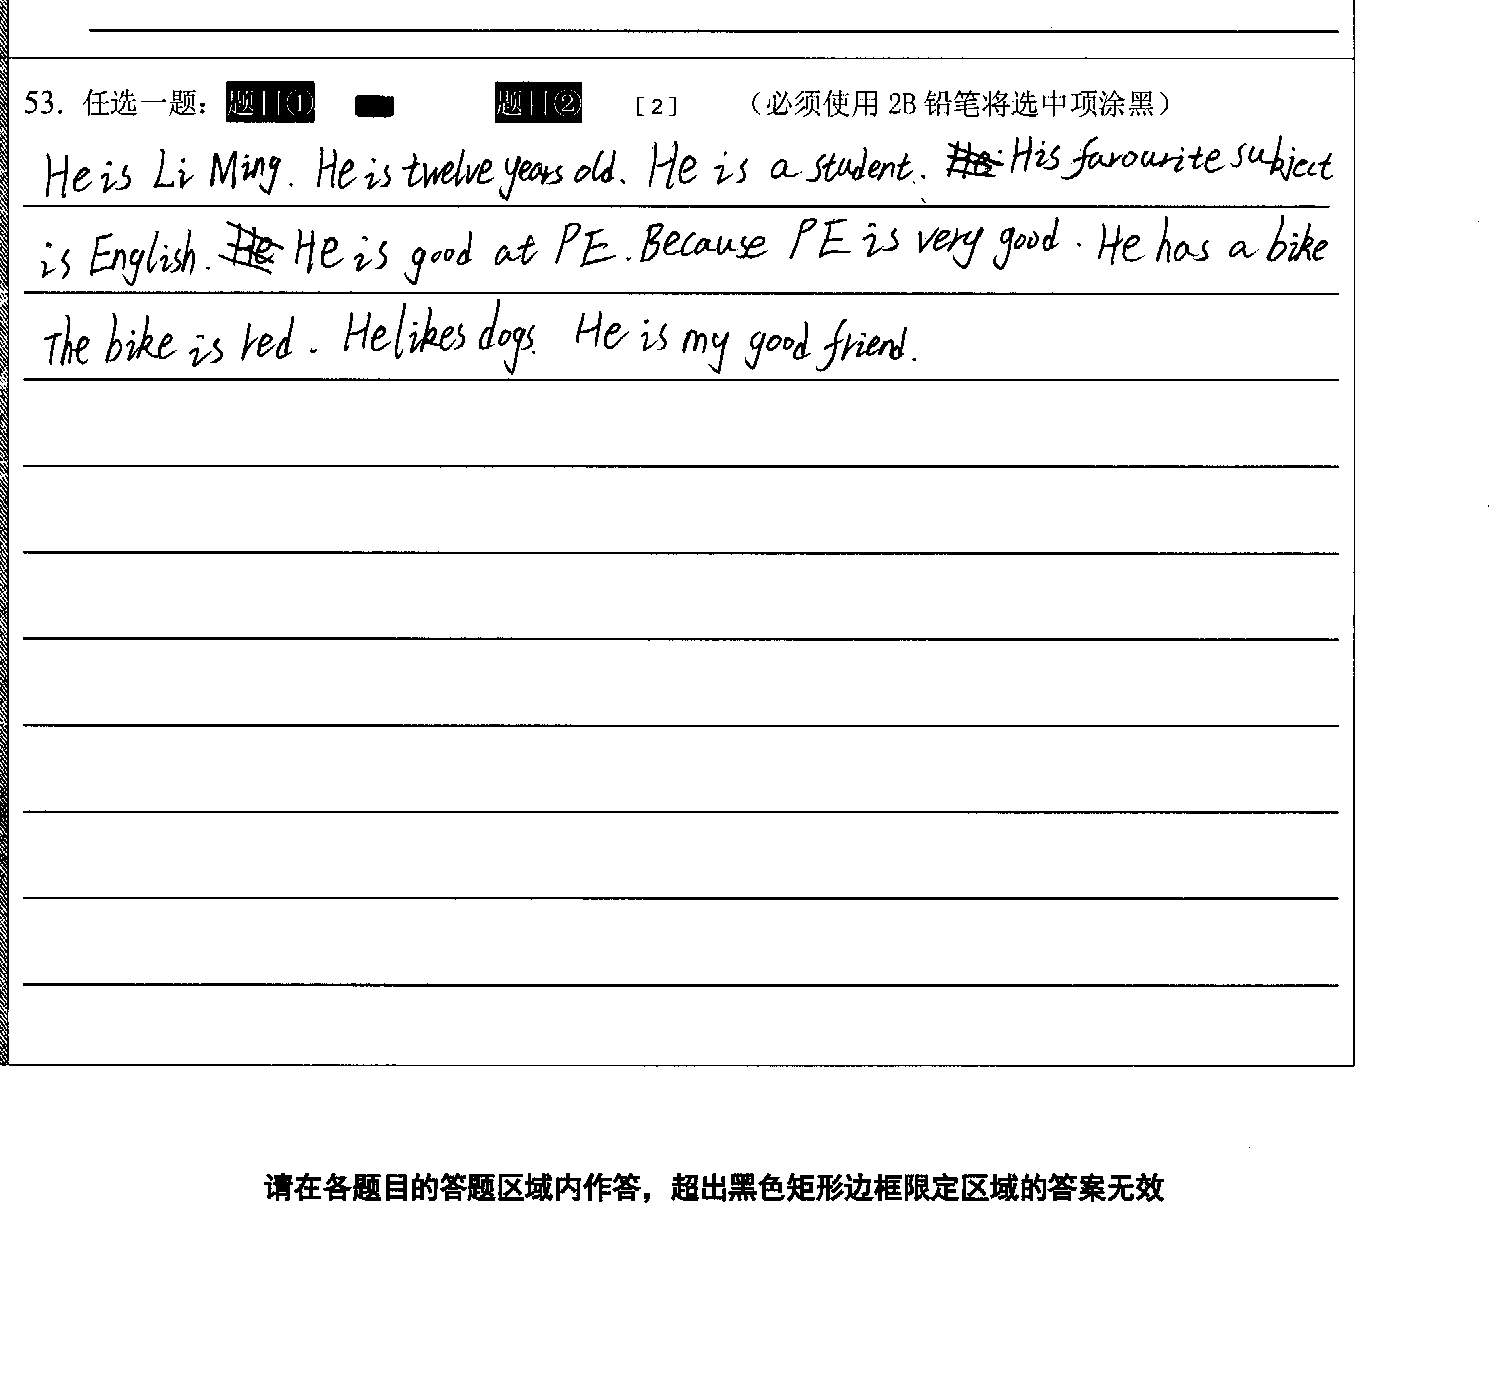 53. 任选一题： 题目① 题目② [2] （必须使用 2B 铅笔将选中项涂黑）
He is Li Ming. He is twelve years old. He is a student. He His favourite subject
is English. He He is good at PE. Because PE is very good. He has a bike
The bike is red. He likes dogs. He is my good friend.
请在各题目的答题区域内作答，超出黑色矩形边框限定区域的答案无效